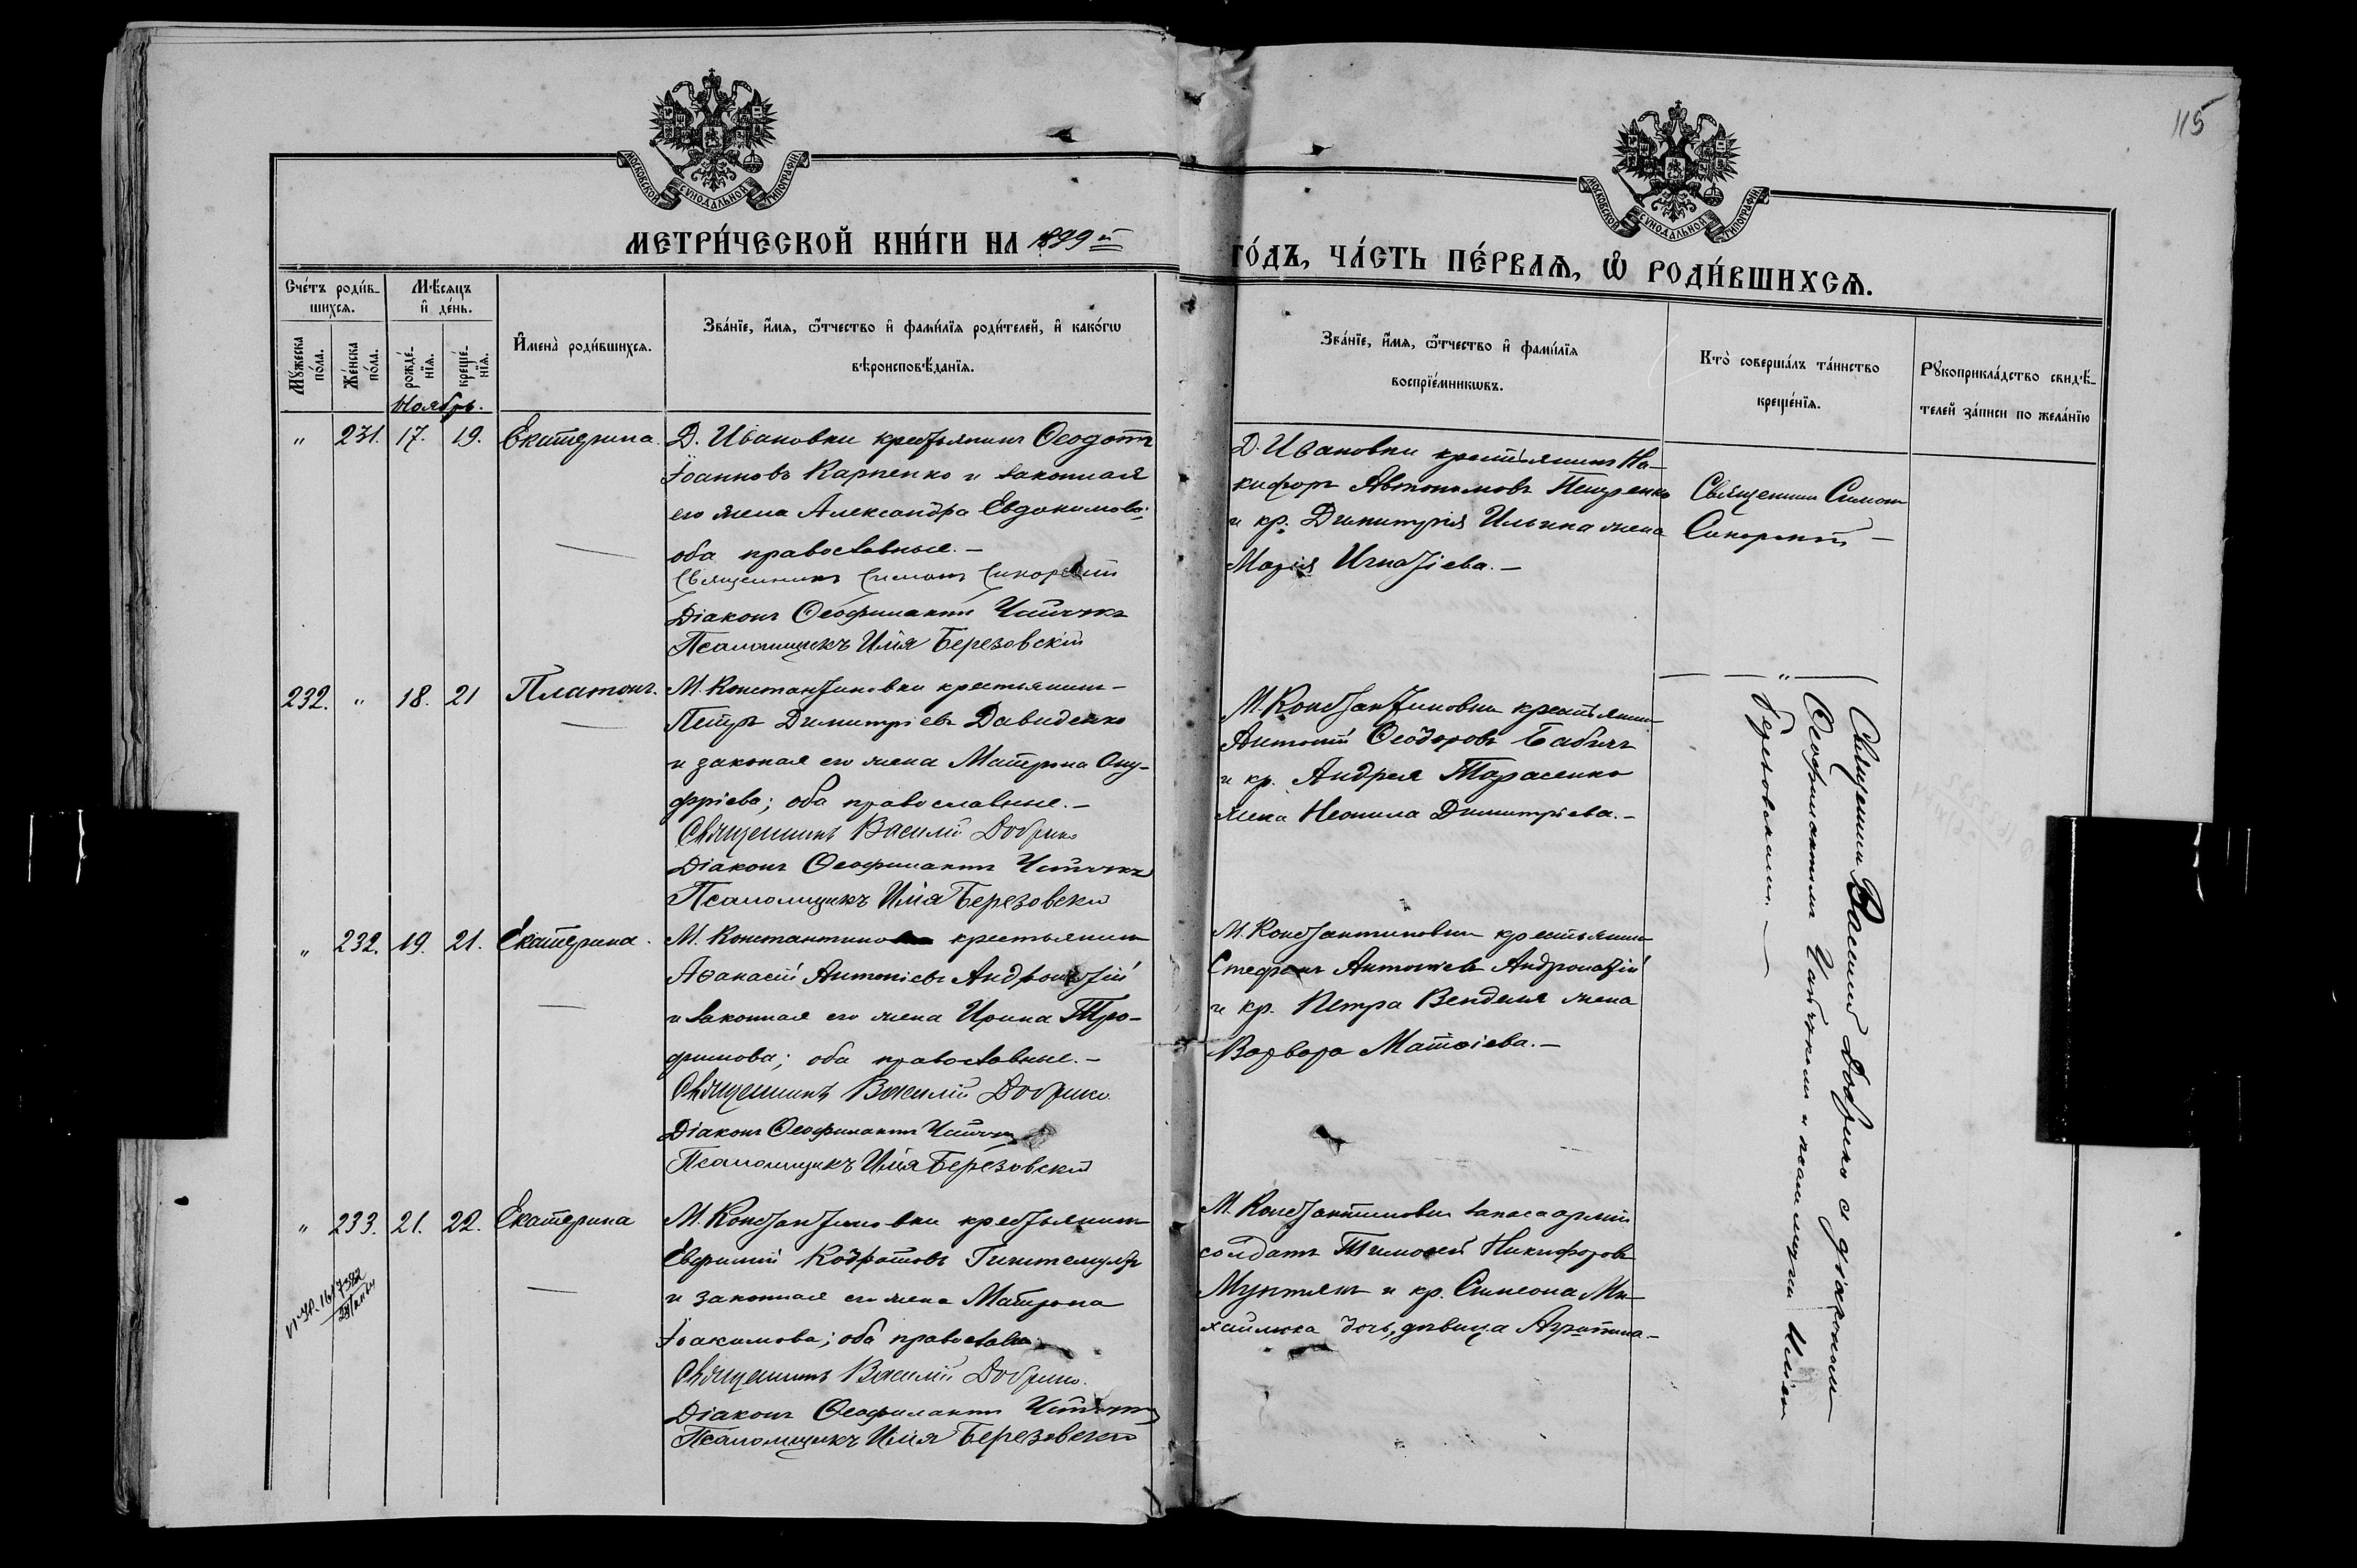 115
МОСКОВСКОЙ СѴНОДАЛЬНОЙ ТИПОГРАФІИ
МОСКОВСКОЙ СѴНОДАЛЬНОЙ ТИПОГРАФІИ
МЕТРИ́ЧЕСКОЙ КНИ́ГИ НА 1899 й
ГО́ДЪ, ЧА́СТЬ ПЕ́РВАѦ, Ѽ РОДИ́ВШИХСѦ.
Сче́тъ роди́в-
шихсѧ.
Мѣ́сѧцъ
и҆ де́нь.
Мꙋ́жеска
по́ла.
Же́нска
по́ла.
рожде́-
нїѧ.
креще́-
нїѧ.
И҆мена̀ роди́вшихсѧ.
Зва́нїе, и҆́мѧ, ѻ҆́тчество и҆ фами́лїѧ роди́телей, и҆ како́гѡ
вѣроисповѣ́данїѧ.
Зва́нїе, и҆́мѧ, ѻ҆́тчество и҆ фами́лїѧ
воспрїе́мникѡвъ.
Кто̀ соверша́лъ та́инство
креще́нїѧ.
Рꙋкоприкла́дство свидѣ́-
телей за́писи по жела́нїю
Ноябрь.
" 231. 17. 19. Екатерина.
Д. Ивановки крестьянинъ Ѳеодотъ
Іоанновъ Карпенко и законная
его жена Александра Евдокимова;
оба православные.—
Священникъ Симонъ Сикорскій
Діаконъ Ѳеофилактъ
Псаломщикъ Илія Березовскій
Д. Ивановки крестьянинъ Ни-
кифоръ Автономовъ
и кр. Димитрія Ильина жена
Марія Игнатіева.—
Священникъ Симонъ
Сикорскій—
232. " 18. 21 Платонъ.
М. Константиновки крестьянинъ
Петръ Димитріевъ Давиденко
и законая его жена Матрона Ону-
фріева; оба православные.—
Священникъ Василій Добрико
Діаконъ Ѳеофилактъ
Псаломщикъ Илія Березовскій
М. Константиновки крестьянинъ
Антоній Ѳеодоровъ Бабичъ
и кр. Андрея Тарасенко
жена Неонила Димитріева.—
Священникъ Василій Добрико съ діакономъ
Ѳеофилактомъ и псаломщик. Иліею
Березовскимъ.—
" 232. 19. 21. Екатерина.
М. Константиновки крестьянинъ
Аѳанасій Антоніевъ Андронатій
и законная его жена Ирина Тро-
фимова; оба православные.—
Священникъ Василій Добрико
Діаконъ Ѳеофилактъ
Псаломщикъ Илія Березовскій
М. Константиновки крестьянинъ
Стефанъ Антоніевъ Андронатій
и кр. Петра Венделя жена
Варвара Матѳіева.—
" 233. 21. 22. Екатерина
М. Константиновки крестьянинъ
Евфимій Кодратовъ
и законная его жена Матрона
Іоакимова; оба православн.
Священникъ Василій Добрико.
Діаконъ Ѳеофилактъ
Псаломщикъ Илія Березовскій
М. Константиновки запаса арміи
солдатъ Тимоѳей Никифоровъ
Мунтянъ и кр. Симеона Ми-
хайлюка дочь, дѣвица Агрипина.—